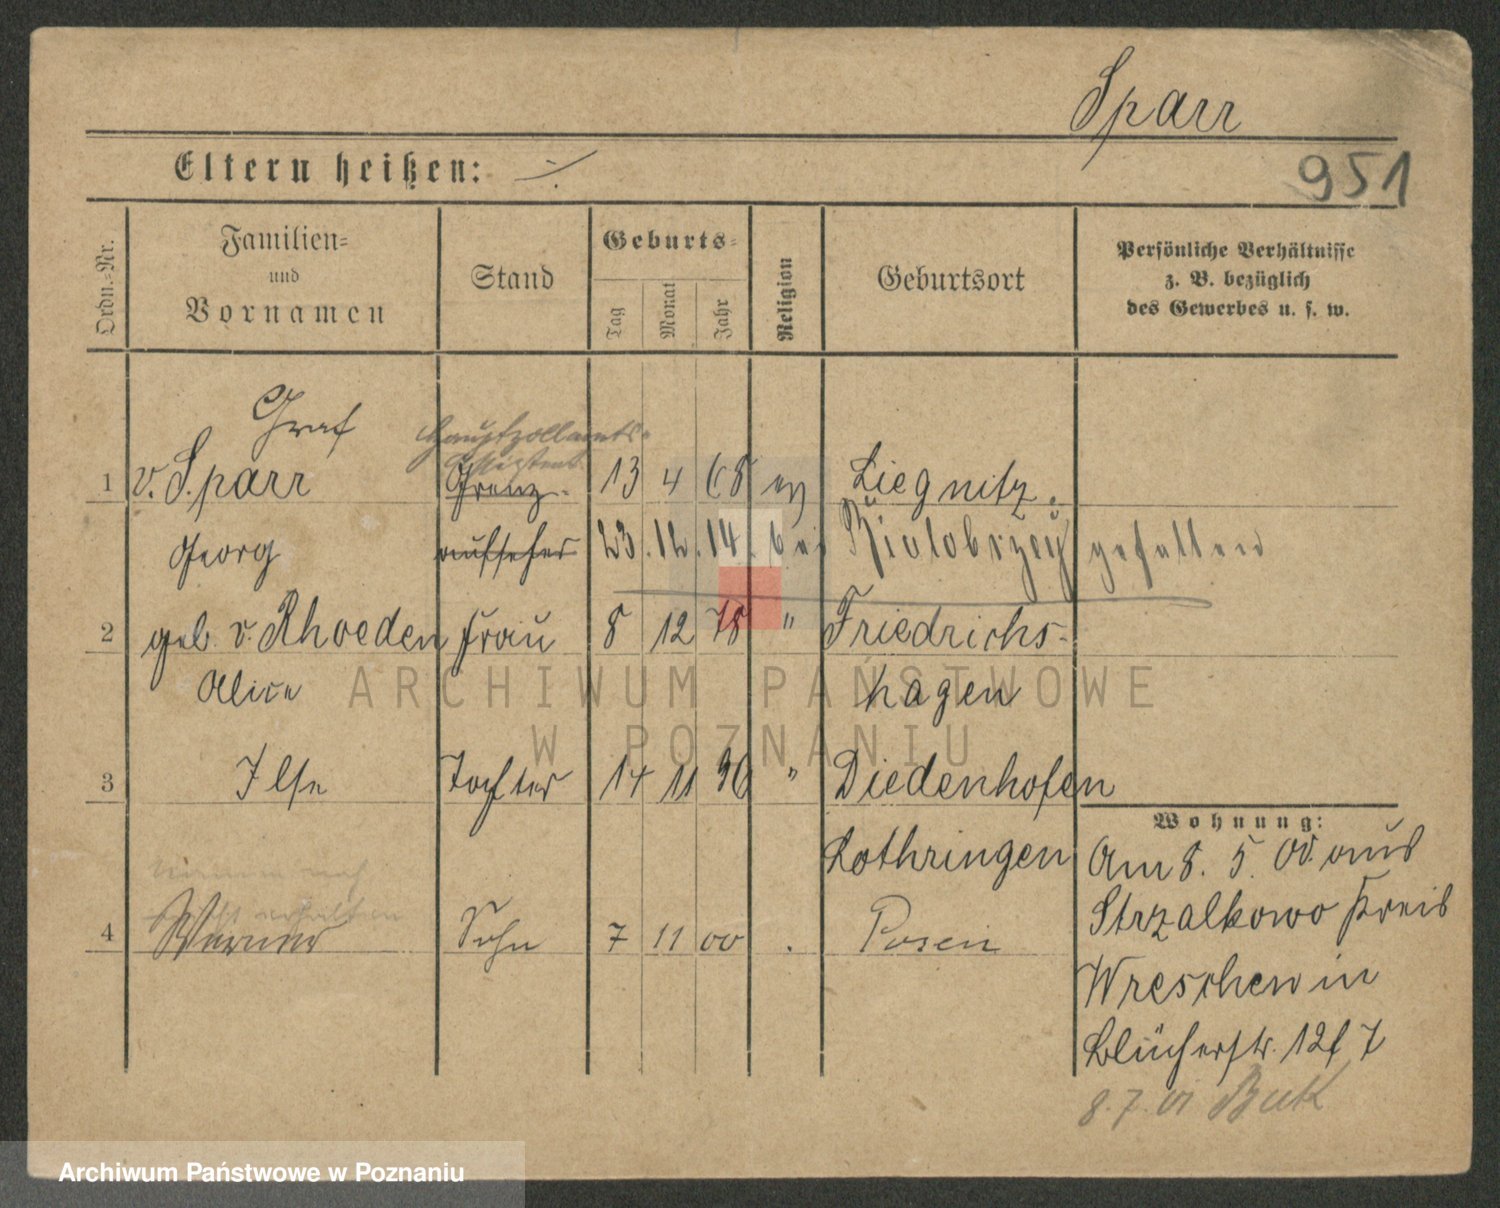 Sparr
951
Eltern heißen: ./.
Ordn.-Nr.
Familien-
und
Vornamen
Stand
Geburts-
Tag
Monat
Jahr
Religion
Geburtsort
Persönliche Verhältnisse
z. B. bezüglich
des Gewerbes u. s. w.
Graf
Hauptzollamts-
Assistent
1 v. Sparr Grenz- 13 4 68 ev Liegnitz.
Georg aufseher 23. 12. 14. bei gefallen
2 geb. v. Rhoeden Frau 8 12 78 " Friedrichs-
Alice hagen
3 Ilse Tochter 14 11 96 " Diedenhofen
Lothringen
4 Werner Sohn 7 11 00 . Posen
Wohnung:
Am 8. 5. 00. aus
Strzalkowo Kreis
Wreschen in
Blücherstr. 12 7
8.7.01 Buk
ARCHIWUM PAŃSTWOWE
W POZNANIU
Archiwum Państwowe w Poznaniu